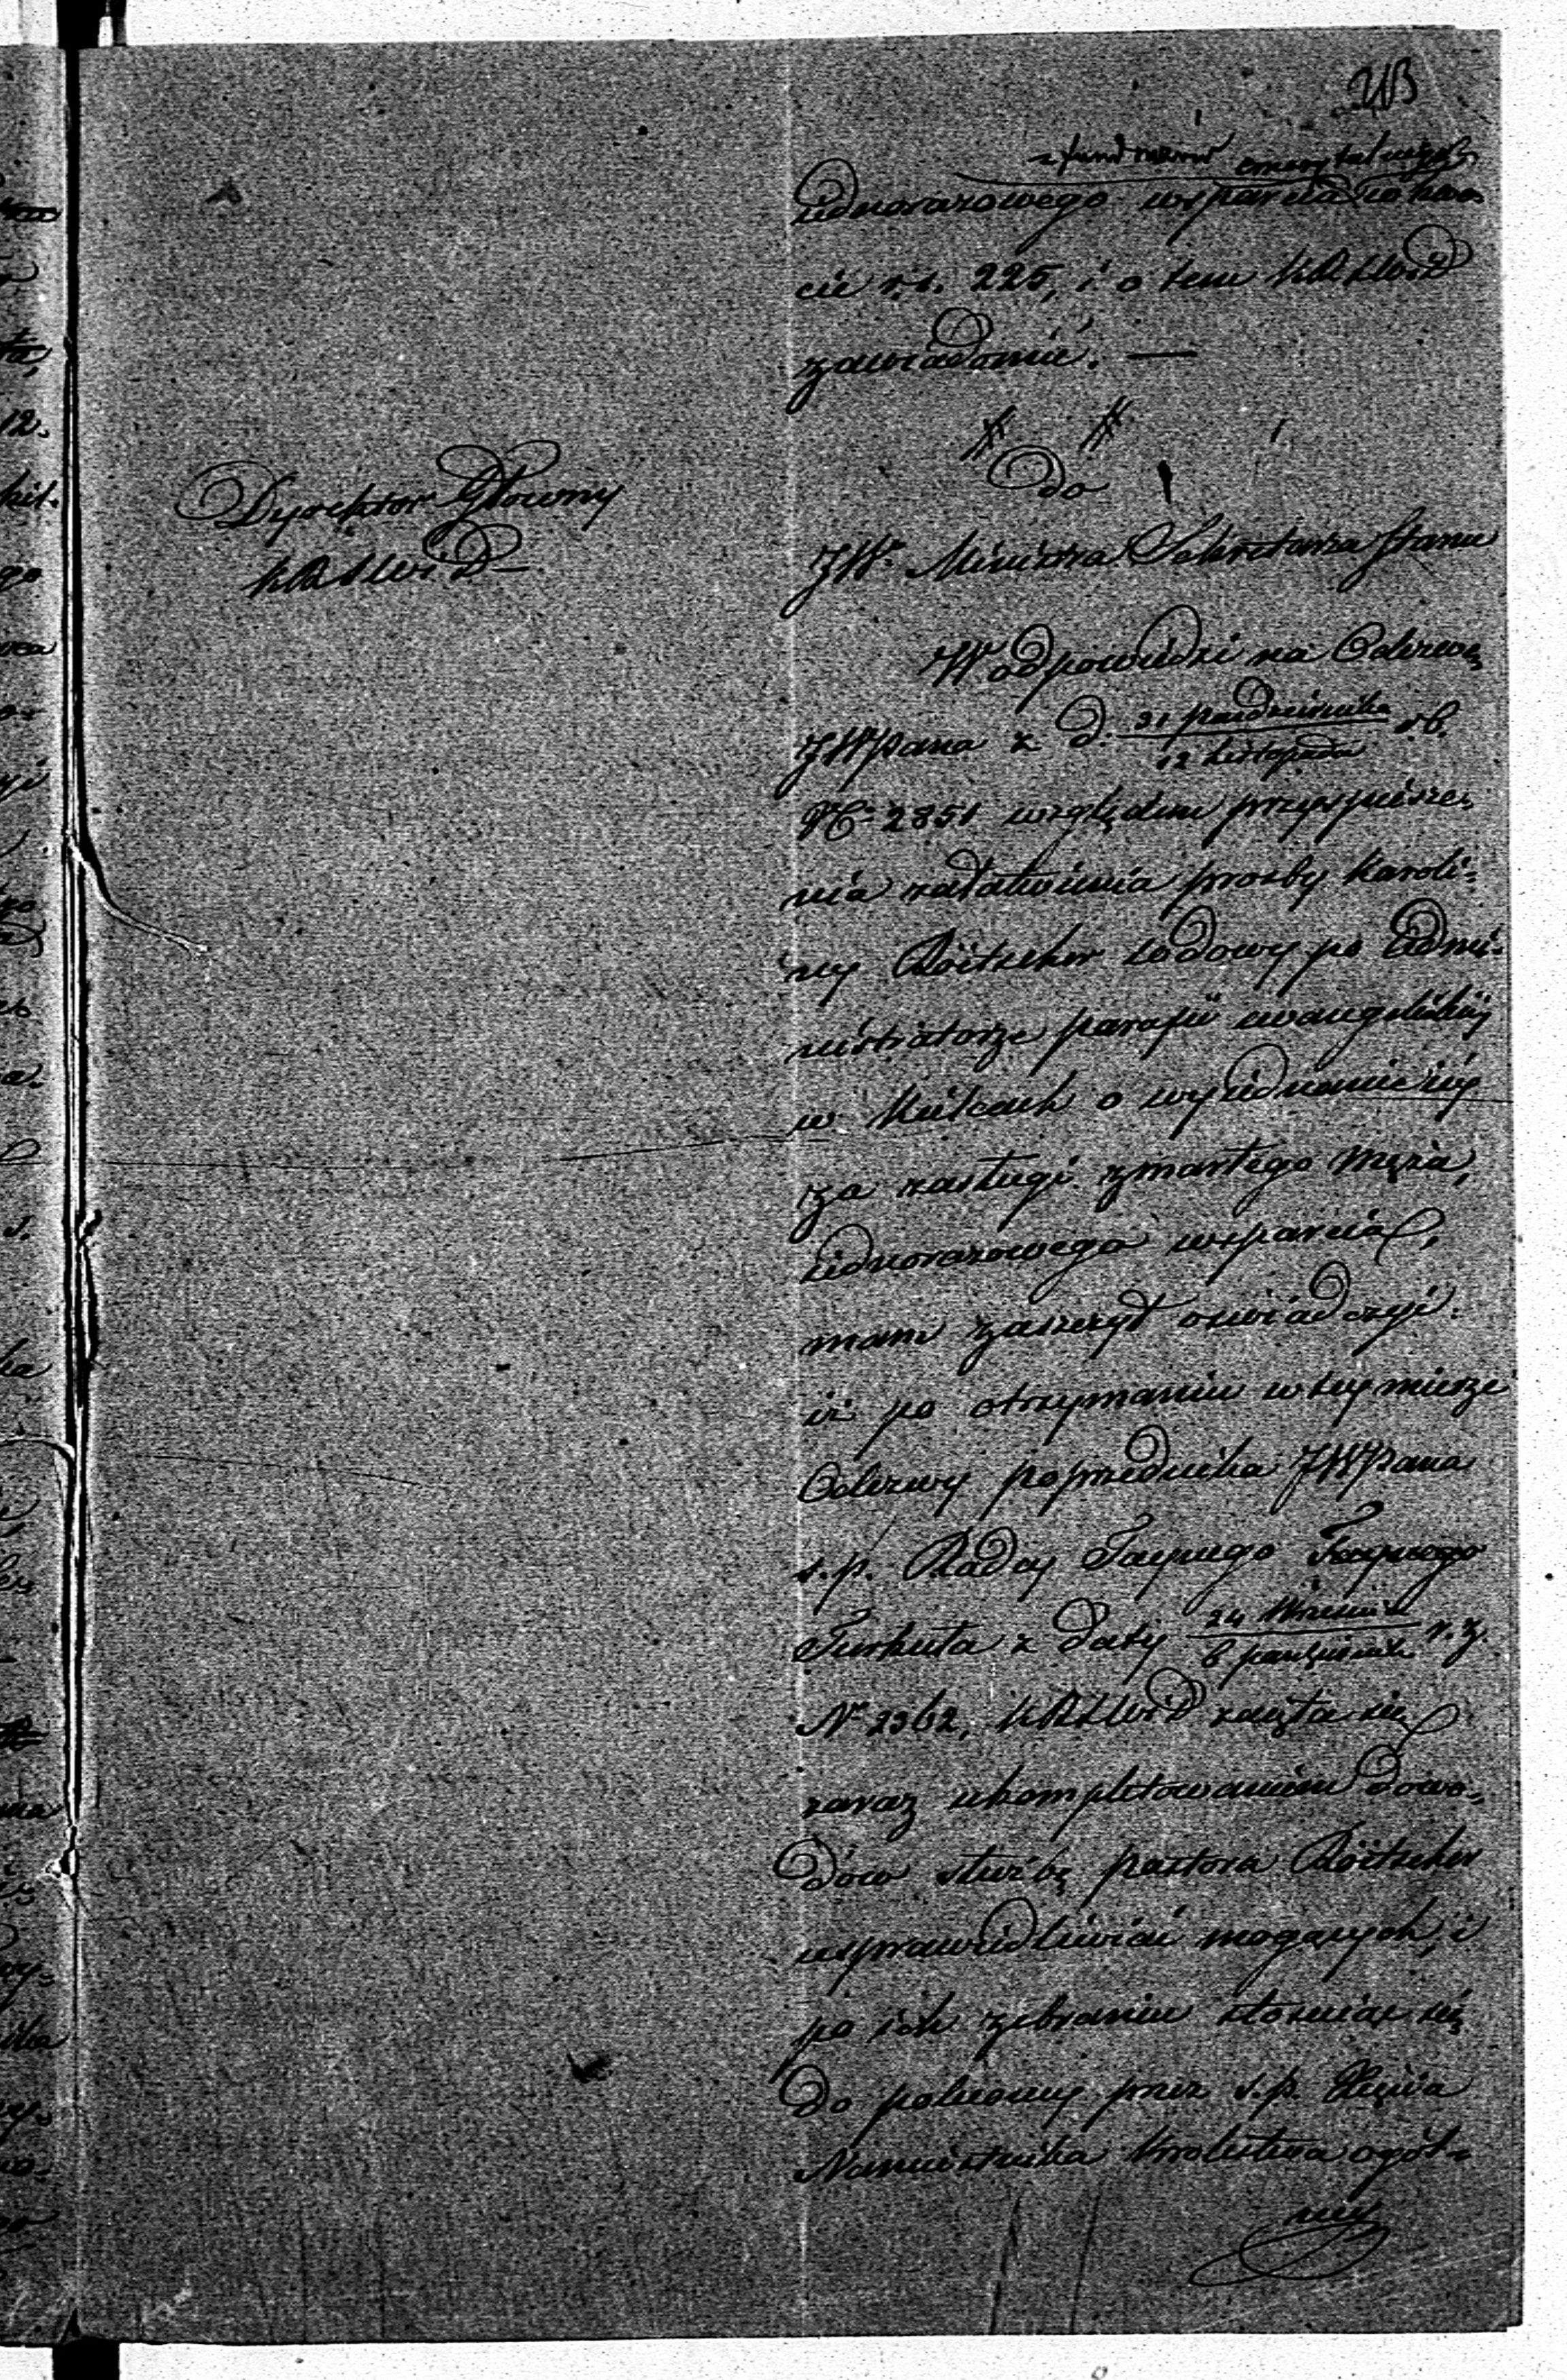 z funduszów emerytalnych
jednorazowego wsparcia w kwo-
cie r.s. 225, i o tem KRSWiD
zawiadomić. —
Do
Dyrektor Główny
KRSWiD
JWo Ministra Sekretarza Stanu
W odpowiedzi na Odezwę
JWPana z d. 31 października / 12 listopada r.b.
No 2851 względem przyspiesze-
nia załatwienia prośby Karoli-
ny Röitscher wdowy po Admi-
nistratorze parafii ewangelickiej
w Kielcach o wyjednanie jej
za zasługi zmarłego męża,
jednorazowego wsparcia,
mam zaszczyt oświadczyć
iż po otrzymaniu w tej mierze
Odezwy poprzednika JWPana
ś.p. Radcy Taynego
Turkułła z daty 24 Września / 6 październ. r.z.
No 2362, KRSWiD zajęła się
zaraz ukompletowaniem dowo-
dów służbę pastora Röitscher
usprawiedliwiać mogących, i
po ich zebraniu stosując się
do poleconej przez ś.p. Xięcia
Namiestnika Królestwa ogól-
nej